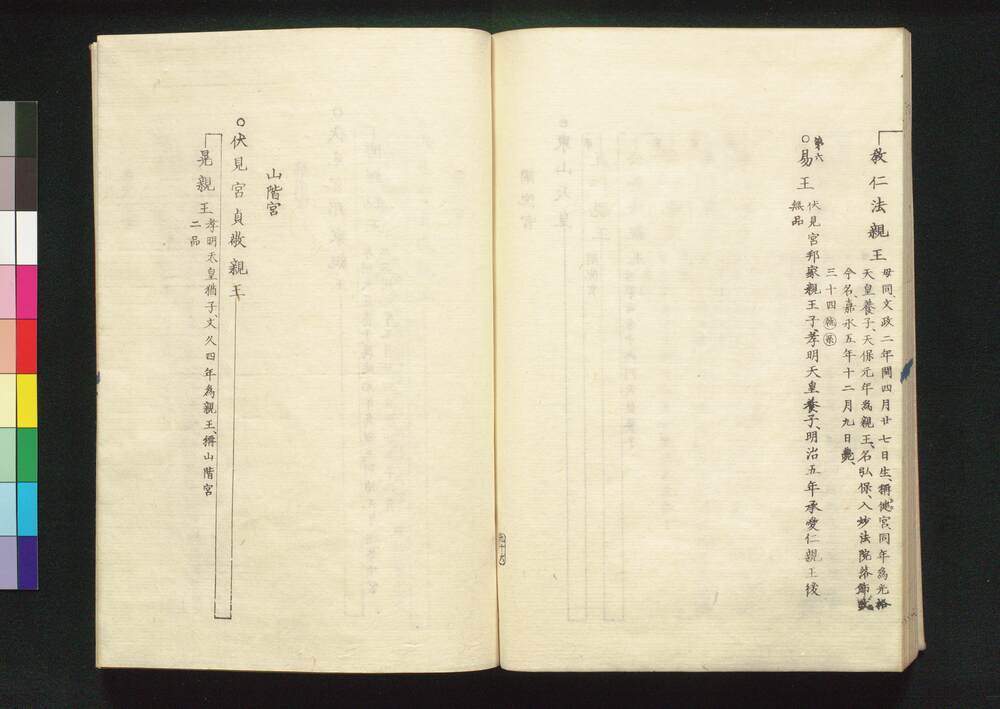 教仁法親王
母同文政二年閏四月廿七日生、稱㦤宮、同年為光格
天皇養子、天保元年為親王、名弘保、入妙法院落飾改
今名、嘉永五年十二月九日薨、
三十四
第六
〇易王
伏見宮邦家親王子、孝明天皇養子、明治五年承愛仁親王後
無品
山階宮
〇伏見宮貞敬親王
晃親王
孝明天皇猶子文久四年為親王、稱山階宮
二品